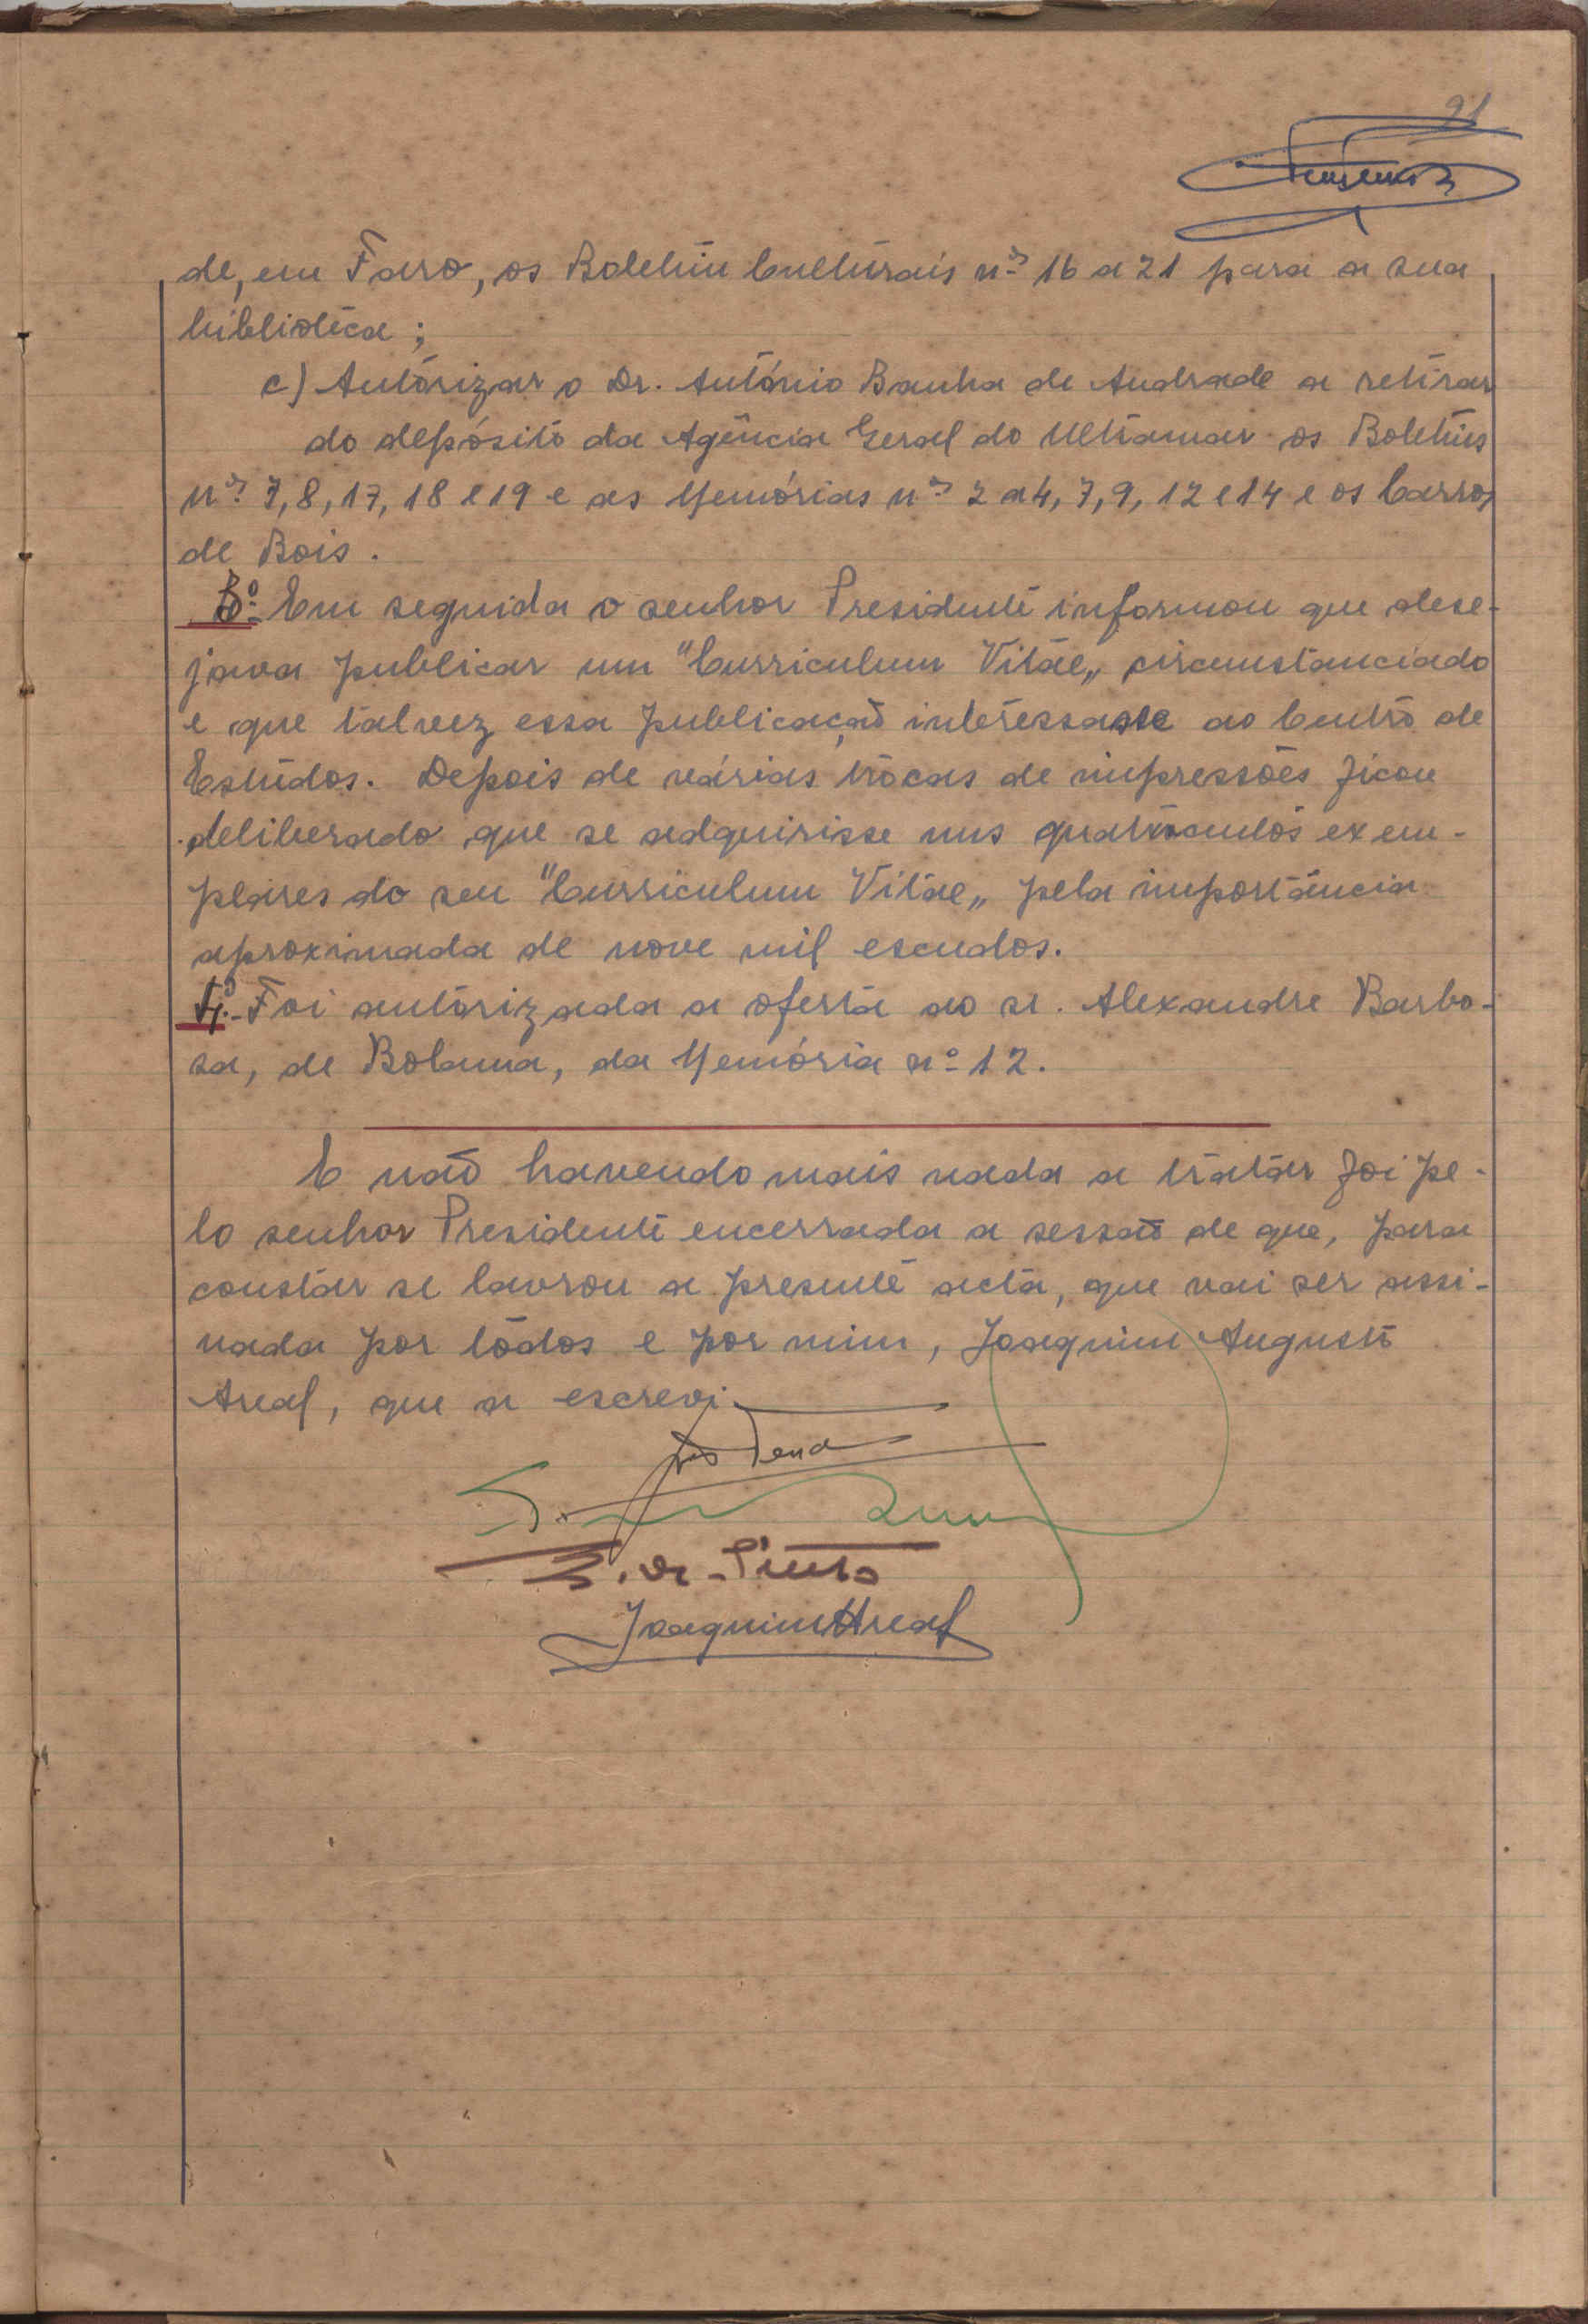 91
de, em Faro, os Boletim Culturais nos 16 a 21 para a sua
biblioteca;
c) Autorizar o Dr. António Banha de Andrade a retirar
do depósito da Agência Geral do Ultramar os Boletins
nos 7, 8, 17, 18 e 19 e as Memórias nos 2 a 4, 7, 9, 12 e 14 e os Carros
de Bois.
6º- Em seguida o senhor Presidente informou que dese-
java publicar um "Curriculum Vitae„ circunstanciado
e que talvez essa publicação interessasse ao Centro de
Estudos. Depois de várias trocas de impressões ficou
deliberado que se adquirisse uns quatrocentos exem-
plares do seu "Curriculum Vitae„ pela importância
aproximada de nove mil escudos.
7º- Foi autorizada a oferta ao sr. Alexandre Barbo-
sa, de Bolama, da Memória nº 12.
E não havendo mais nada a tratar foi pe-
lo senhor Presidente encerrada a sessão de que, para
constar se lavrou a presente acta, que vai ser assi-
nada por todos e por mim, Joaquim Augusto
Areal, que a escrevi.
Joaquim Areal